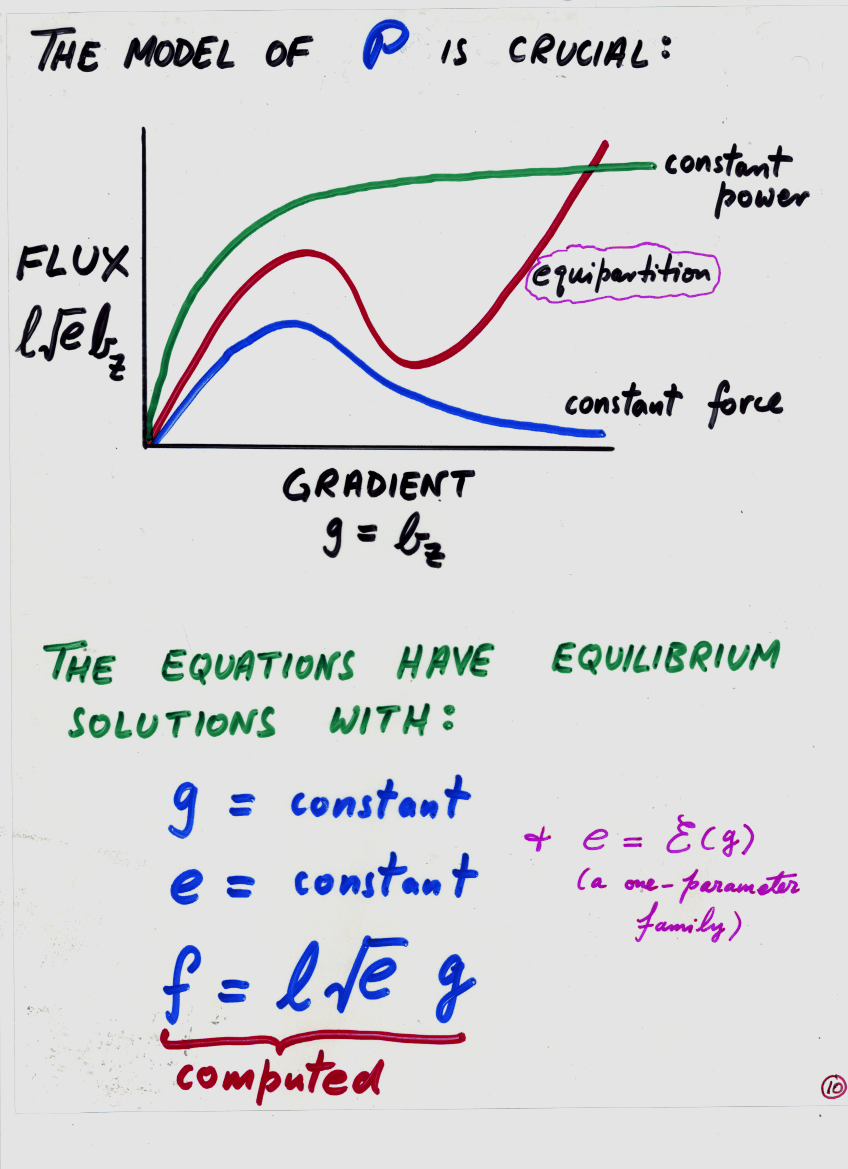 THE MODEL OF P IS CRUCIAL:
constant
power
FLUX
l√e b_z
equipartition
constant force
GRADIENT
g = b_z
THE EQUATIONS HAVE EQUILIBRIUM
SOLUTIONS WITH:
g = constant
e = constant
+ e = Ɛ(g)
(a one-parameter
family)
f = l√e g
computed
10